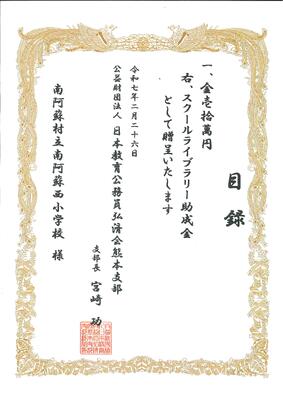 目録
一、金壱拾萬円
右、スクールライブラリー助成金
として贈呈いたします
令和七年二月二十六日
公益財団法人 日本教育公務員弘済会熊本支部
支部長 宮崎 功
南阿蘇村立南阿蘇西小学校 様